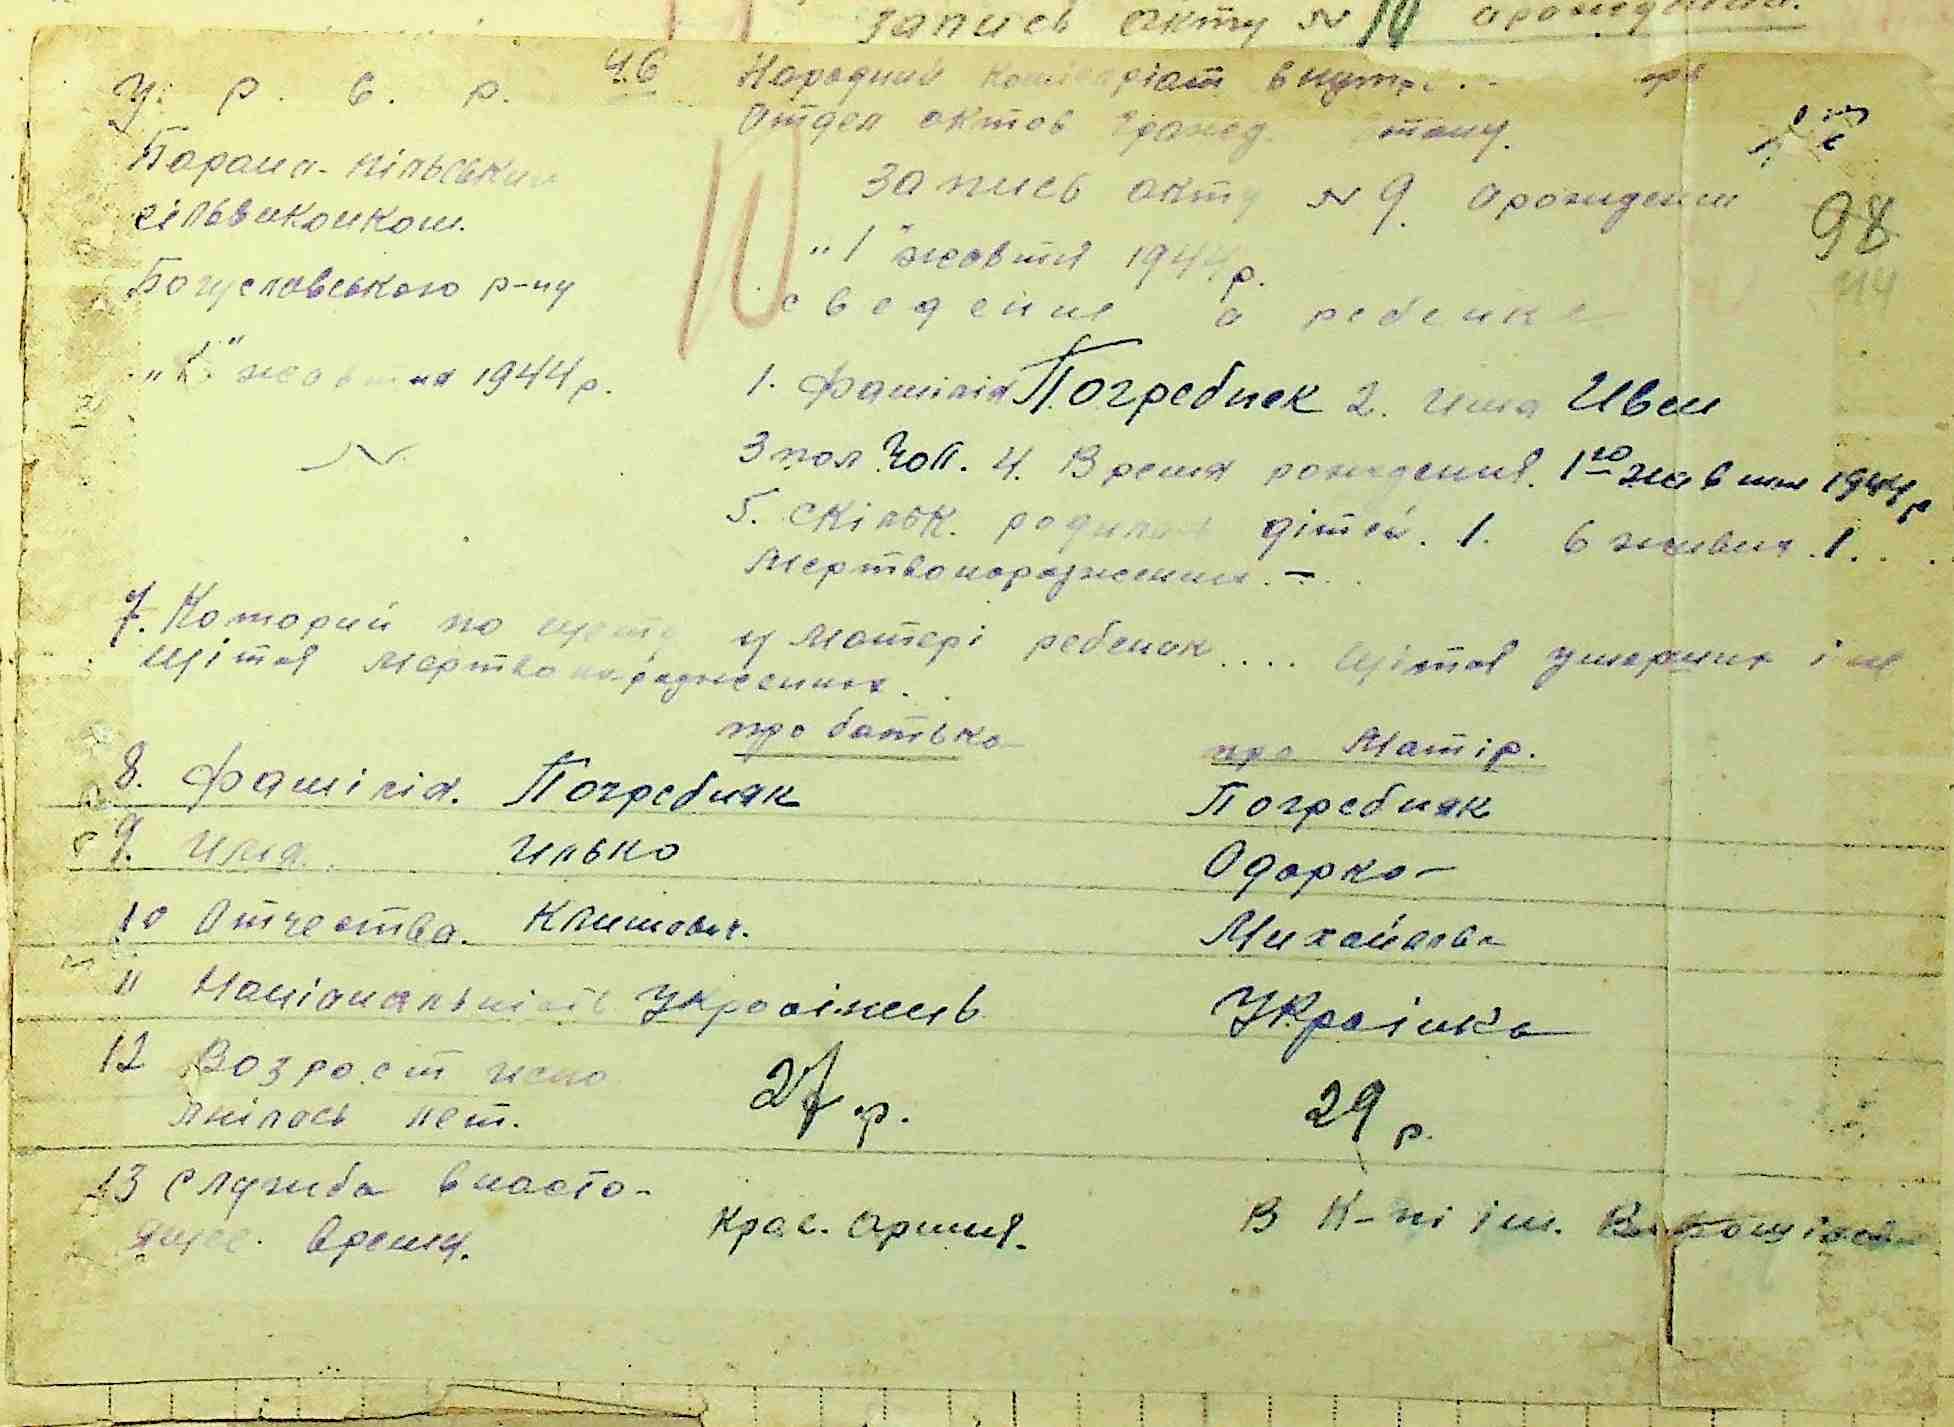 запись акту № 10 орождении.
У. Р. С. Р. 46
Народний Коміссаріат внутр
Отдел актов гражд. стану.
Запись акту № 9. орождении
"1" жовтня 1944 р.
98
114
10
сведение о ребенке
сільвиконком.
Богуславського р-ну
" " жовтня 1944 р.
1. Фамілія Погребняк 2. Имя Иван
3 пол Чол. 4. Время рождения. 1го жовтня 1944 р
5. Скільк. родилось дітей. 1. 6 живих. 1.
Мертвонароджених. –
7. Которий по щету у Матері ребенок .... щітая умерших і не
щітая мертвонароджених.
про батька
про Матір.
8. Фамілія. Погребняк Погребняк
9. Имя. Илько Одарка
10 Отчества. Климович. Михайлова
11 Національність Українець Українка
12 Возраст испо 27 р. 29 р.
лнілось лет.
13 Служба в насто-
ящее время. Крас. Армия. В К-пі ім. Ворошілова